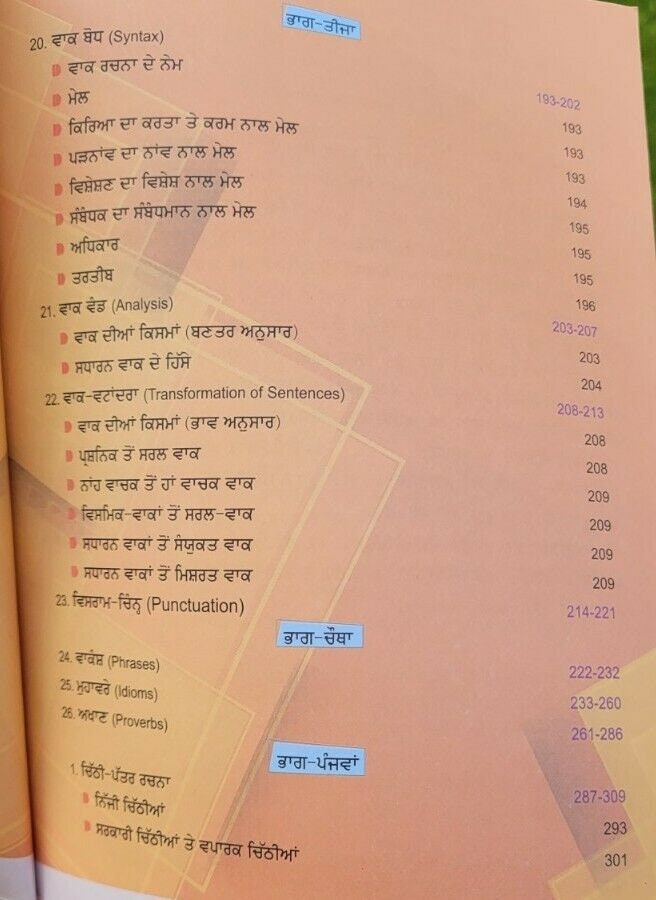 ਭਾਗ-ਤੀਜਾ
20. ਵਾਕ ਬੋਧ (Syntax) 193-202
ਵਾਕ ਰਚਨਾ ਦੇ ਨੇਮ 193
ਮੇਲ 193
ਕਿਰਿਆ ਦਾ ਕਰਤਾ ਤੇ ਕਰਮ ਨਾਲ ਮੇਲ 193
ਪੜਨਾਂਵ ਦਾ ਨਾਂਵ ਨਾਲ ਮੇਲ 194
ਵਿਸ਼ੇਸ਼ਣ ਦਾ ਵਿਸ਼ੇਸ਼ ਨਾਲ ਮੇਲ 195
ਸੰਬੰਧਕ ਦਾ ਸੰਬੰਧਮਾਨ ਨਾਲ ਮੇਲ 195
ਅਧਿਕਾਰ 195
ਤਰਤੀਬ 196
21. ਵਾਕ ਵੰਡ (Analysis) 203-207
ਵਾਕ ਦੀਆਂ ਕਿਸਮਾਂ (ਬਣਤਰ ਅਨੁਸਾਰ) 203
ਸਧਾਰਨ ਵਾਕ ਦੇ ਹਿੱਸੇ 204
22. ਵਾਕ-ਵਟਾਂਦਰਾ (Transformation of Sentences) 208-213
ਵਾਕ ਦੀਆਂ ਕਿਸਮਾਂ (ਭਾਵ ਅਨੁਸਾਰ) 208
ਪ੍ਰਸ਼ਨਿਕ ਤੋਂ ਸਰਲ ਵਾਕ 208
ਨਾਂਹ ਵਾਚਕ ਤੋਂ ਹਾਂ ਵਾਚਕ ਵਾਕ 209
ਵਿਸਮਿਕ-ਵਾਕਾਂ ਤੋਂ ਸਰਲ-ਵਾਕ 209
ਸਧਾਰਨ ਵਾਕਾਂ ਤੋਂ ਸੰਯੁਕਤ ਵਾਕ 209
ਸਧਾਰਨ ਵਾਕਾਂ ਤੋਂ ਮਿਸ਼ਰਤ ਵਾਕ 209
23. ਵਿਸਰਾਮ-ਚਿੰਨ੍ਹ (Punctuation) 214-221
ਭਾਗ-ਚੌਥਾ
24. ਵਾਕੰਸ਼ (Phrases) 222-232
25. ਮੁਹਾਵਰੇ (Idioms) 233-260
26. ਅਖਾਣ (Proverbs) 261-286
ਭਾਗ-ਪੰਜਵਾਂ
1. ਚਿੱਠੀ-ਪੱਤਰ ਰਚਨਾ 287-309
ਨਿੱਜੀ ਚਿੱਠੀਆਂ 293
ਸਰਕਾਰੀ ਚਿੱਠੀਆਂ ਤੇ ਵਪਾਰਕ ਚਿੱਠੀਆਂ 301